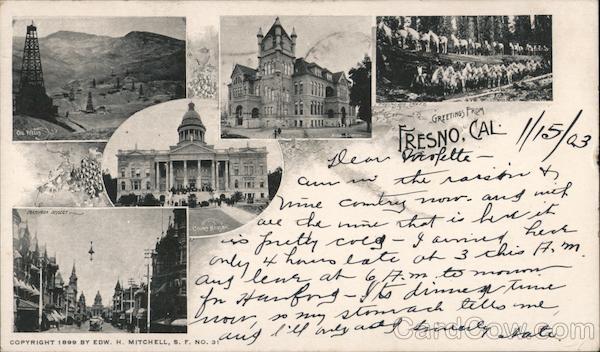 OIL WELLS
COURT HOUSE
MARIPOSA STREET
GREETINGS FROM
FRESNO, CAL.
11/15/03
Dear
am in the raison &
wine country now. and with
all the wine that is here it
is pretty cold - I arrived here
only 4 hours late at 3 this A.M.
and leave at 6 A.M. to morrow
for Hanford - Its dinner time
now, so my stomach tells me,
and I'll
COPYRIGHT 1899 BY EDW. H. MITCHELL, S. F. NO. 31
CardCow.com